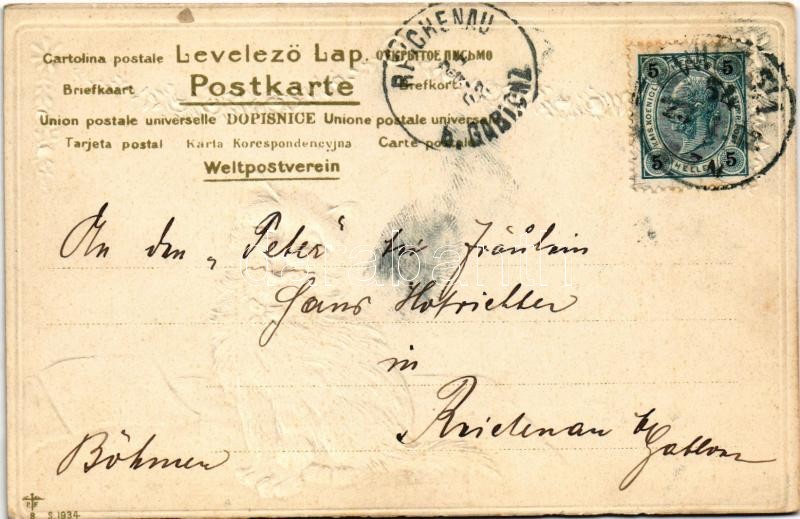 Cartolina postale Levelező Lap. ОТКРЫТОЕ ПИСЬМО
Briefkaart Postkarte Brefkort
Union postale universelle DOPISNICE Unione postale universale
Tarjeta postal Karta Korespondencyjna Carte postale
Weltpostverein
REICHENAU
b. GABLONZ
5 5
KAIS. KOENIGL.
5 HELLER 5
An den „Peter“ bei Fräulein
Hans Hofrichter
in
Reichenau b/
Böhmen Gablonz
8 S. 1934